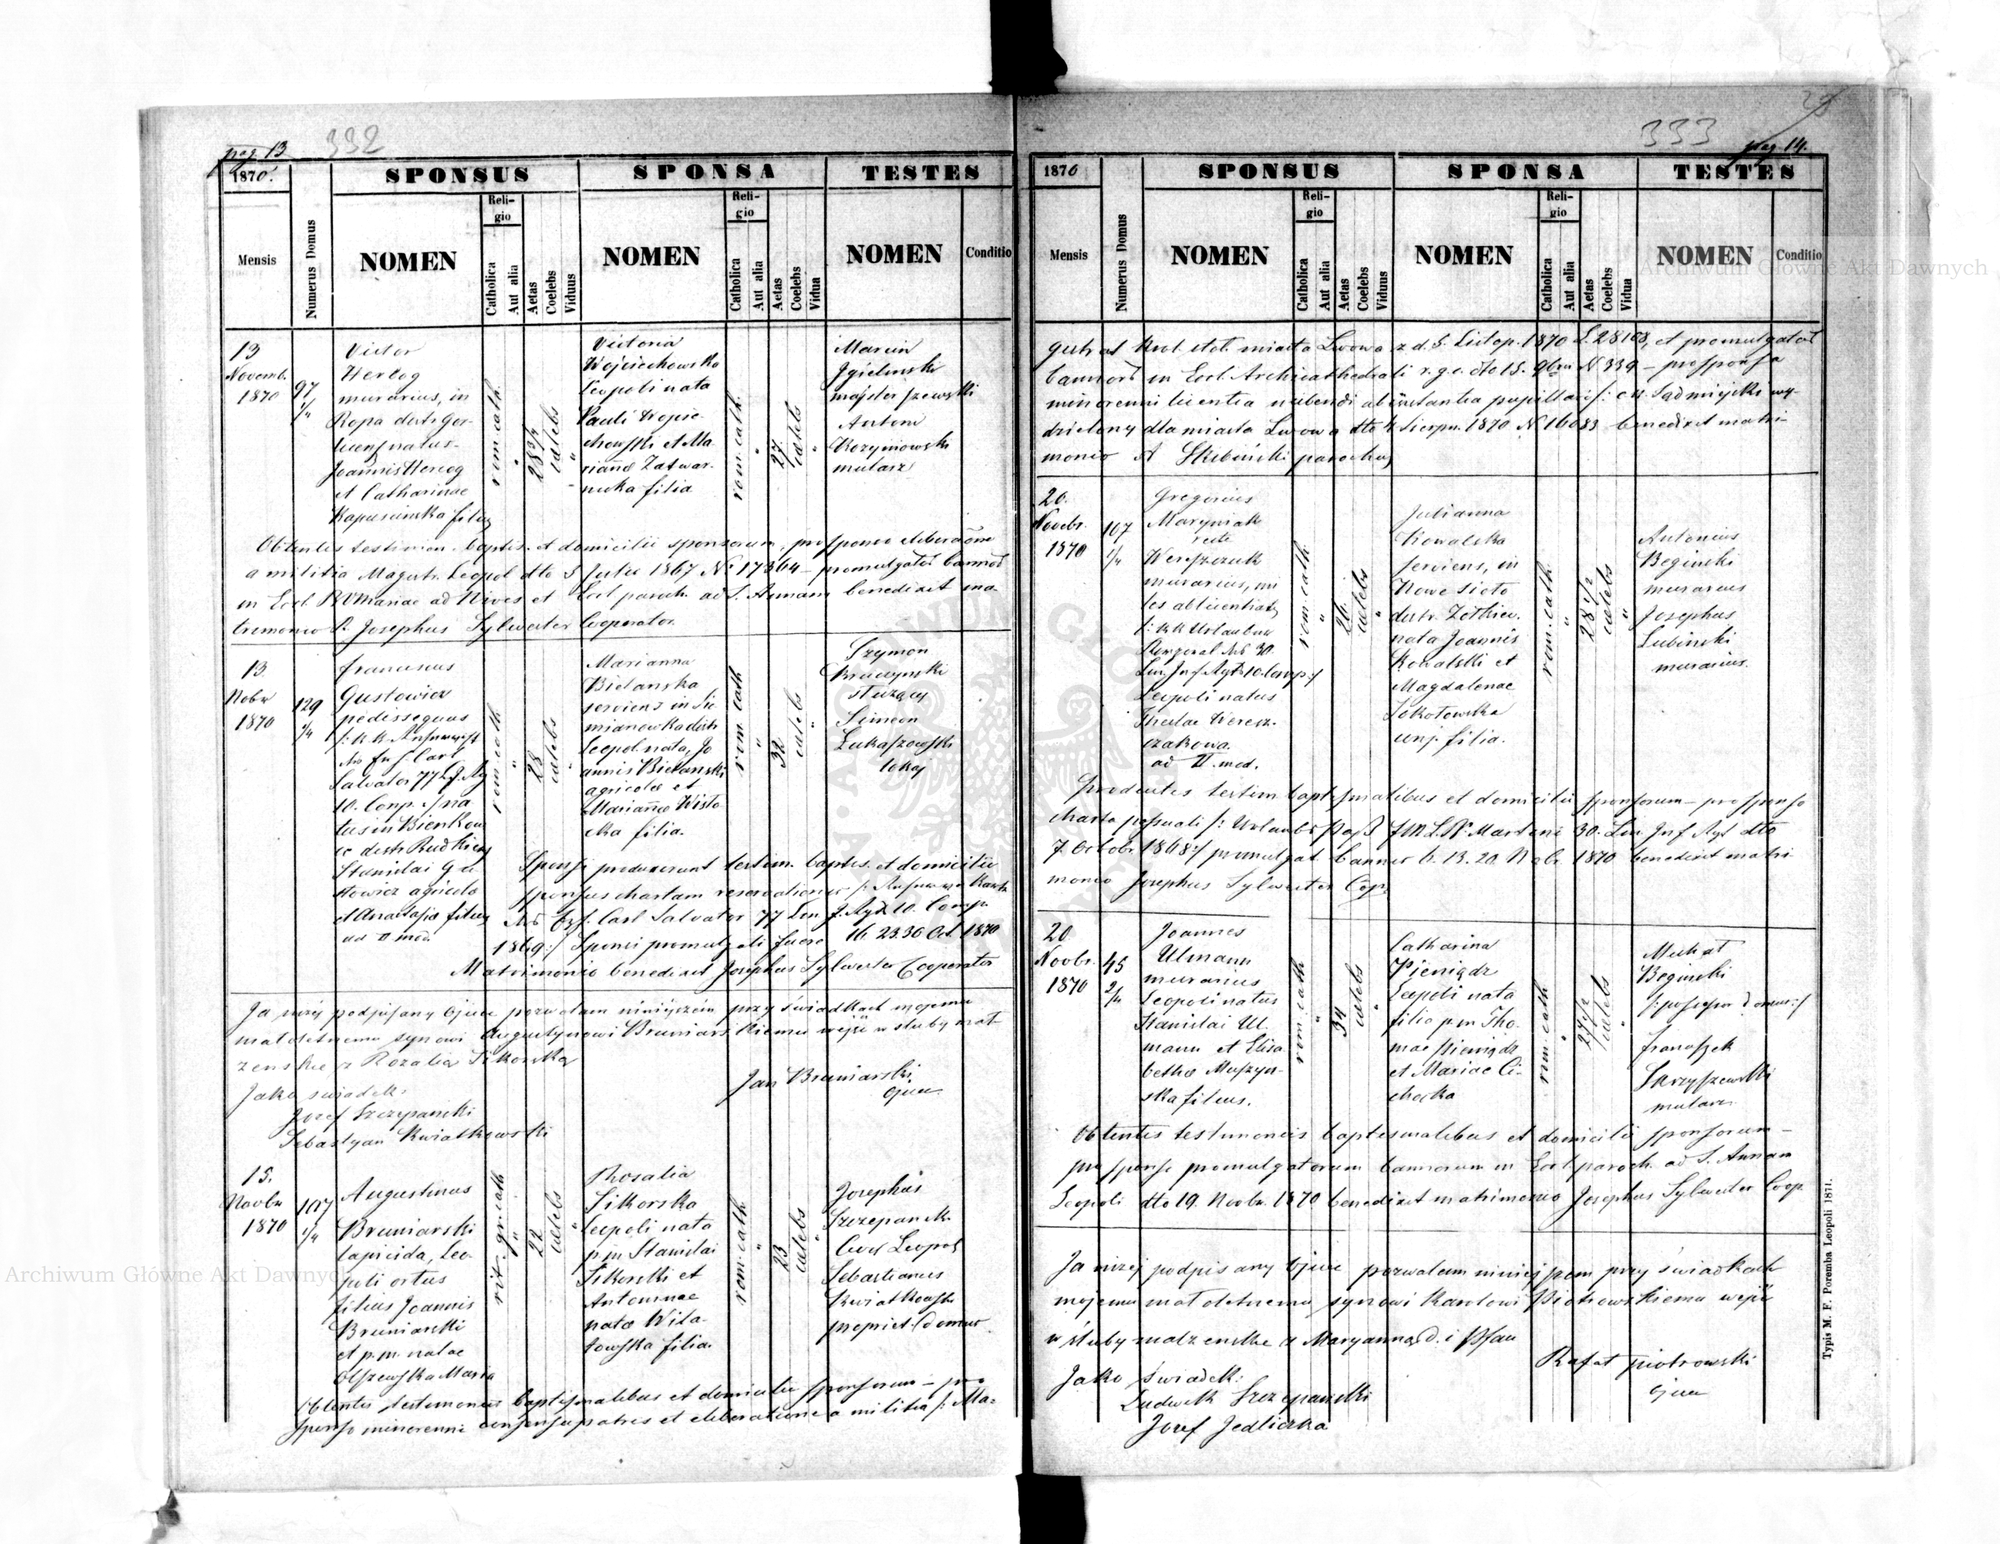 pag. 13
332
1870.
SPONSUS
SPONSA
TESTES
Mensis
Numerus Domus
NOMEN
Religio
Catholica
Aut alia
Aetas
Coelebs
Viduus
NOMEN
Religio
Catholica
Aut alia
Aetas
Coelebs
Vidua
NOMEN
Conditio
13
Novemb.
1870
97
1/4
Victor
Herzog
murarius, in
Ropa distr. Gor-
natus
Joannis Herzog
et Catharinae
Kapuscinska filius
rom. cath
28 3/4
caelebs
Victoria
Wojciechowska
Leopoli nata
Pauli Wojcie-
chowski et Ma-
rianna Zatwar-
nicka filia
rom. cath.
27
caelebs
Marcin
Igielinski
majster szewski
Antoni
mularz
Obtentis testimon. baptis. et domicilii sponsorum, pro sponso liberatione
a militia Magistr. Leopol dto 5 Julii 1867 N. 17364 promulgatis bannis
in Eccl. B.V. Mariae ad Nives et Eccl. paroch. ad S. Annam benedixit ma-
trimonio P. Josephus Sylwester Cooperator.
13
Nobr
1870
129
1/4
Franciscus
Gustowicz
pedissequus
Salvator 77
10. Comp. na
tus in Bienkow
distr. Rudkiens
Stanislai Gu
stowicz agricola
et Anastasia filius
ad II mod.
rom. cath
28
caelebs
Marianna
Bielanska
serviens in Sie
mianowka distr
Leopol. nata, Jo
annis Bielanski
agricola et
Marianna Wisto
cka filia.
rom. cath
32
caelebs
Szymon
Bruczynski
służący
Simeon
Lukaszowski
lokaj
Sponsi produxerunt testim. baptis. et domicilii
sponsus chartam reservationis
Carl Salvator 77 Lin. J. Rgt 10. Comp.
1869:/ Sponsi promulgati fuere 16. 23. 30 Oct. 1870
Matrimonio benedixit Josephus Sylwester Cooperator
Ja niżej podpisany Ojciec pozwalam niniejszem przy świadkach mojemu
małoletniemu synowi Augustynowi Bruniarskiemu wejść w śluby mał
zenskie z Rozalia Sikorską
Jako świadek:
Jozef Szczepanski
Sebastyan Kwiatkowski
Jan Bruniarski
Ojciec
15.
Novbr
1870
107
1/4
Augustinus
Bruniarski
lapicida, Leo-
poli ortus
filius Joannis
Bruniarski
et p.m. natae
Olszewska Maria
rit. gr. cath
22
caelebs
Rosalia
Sikorska
Leopoli nata
p.m. Stanislai
Sikorski et
Antoninae
nata Wita-
towska filia.
rom. cath
23
caelebs
Josephus
Szczepanski
Civis Leopol
Sebastianus
Kwiatkowski
propriet. domus
Obtentis testimoniis baptismalibus et domicilii sponsorum – pro
sponso minorenni consensu patris et liberatione a militia /: Ma-
333
pag. 14.
1870
SPONSUS
SPONSA
TESTES
Mensis
Numerus Domus
NOMEN
Religio
Catholica
Aut alia
Aetas
Coelebs
Viduus
NOMEN
Religio
Catholica
Aut alia
Aetas
Coelebs
Vidua
NOMEN
Conditio
gistrat Krol. stoł. miasta Lwowa z d. 5. Listop. 1870 L. 28168, et promulgatis
bannis in Eccl. Archicathedrali r.g.c. dto 15. 9bris N 339 – pro sponsa
minorenni licentia nubendi ab instantia pupillari /: c.k. Sąd miejski wy-
dzielony dla miasta Lwowa dto 4 Sierpn. 1870 N 16083 benedixit matri-
monio A Skibiński parochus
20.
Novbr.
1870
107
1/4
Gregorius
Maryniak
recte
Wereszczuk
murarius, mi
les ab licentia
/: k.k. Urlauber
Korporal 30.
Lin. Inf. Rgt 10. Comp :/
Leopoli natus
Theclae Weresz-
czakowa.
ad II. mod.
rom. cath
26
caelebs
Julianna
Kowalska
serviens, in
Nowe Sioło
distr. Zolkiew.
nata Joannis
Kowalski et
Magdalenae
Sokołowska
conj. filia.
rom. cath
28 1/2
caelebs
Antonius
Beginski
murarius
Josephus
Lubinski
murarius.
Producentes testim. baptismalibus et domicilii sponsorum – pro sponso
charta passuali /: Urlaubs Paß Martini 30. Lin. Inf. Rgt dto
7. Octobr 1868:/ promulgat. bannis 6. 13. 20. Nobr. 1870 benedixit matri
monio Josephus Sylwester Coop.
20
Novbr.
1870
45
2/4
Joannes
Ulmann
murarius
Leopoli natus
Stanislai Ul-
mann et Elisa
betha Muszyn-
ska filius.
rom. cath
34
caelebs
Catharina
Pieniądz
Leopoli nata
filia p.m. Tho-
mae Pieniądz
et Mariae Ci-
chocka
rom. cath
27 1/2
caelebs
Michał
Beginski
/: possessor domus :/
Franciszek
Skrzyszewski
mularz.
Obtentis testimoniis baptismalibus et domicilii sponsorum –
pro sponso promulgatorum bannorum in Eccl. paroch. ad S. Annam
Leopoli dto 19. Novbr. 1870 benedixit matrimonio Josephus Sylwester Coop.
Ja niżej podpisany Ojciec pozwalam niniejszem przy świadkach
mojemu małoletniemu synowi Karolowi Piotrowskiemu wejść
w śluby małzenskie z Maryanną d. i Pfau
Rafał Piotrowski
Ojciec
Jako Świadek:
Ludwik Szczepanski
Jozef Jedliczka
Typis M. F. Poremba Leopoli 1871.
Archiwum Główne Akt Dawnych
Archiwum Główne Akt Dawnych